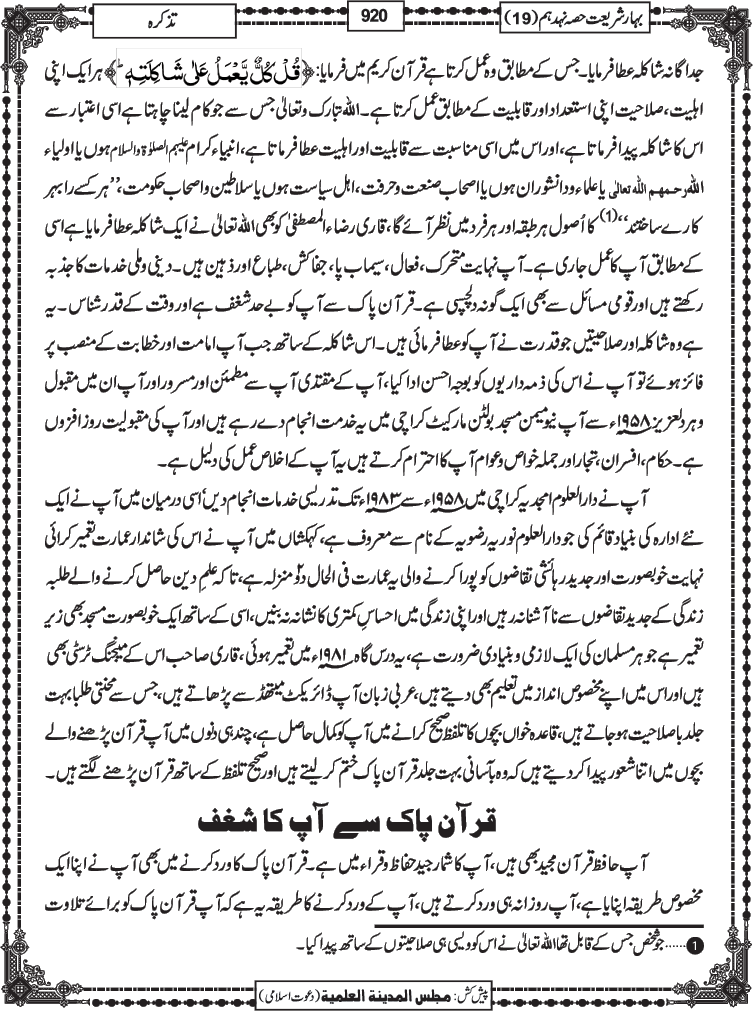 بہار شریعت حصہ نہدہم (19)
920
تذکرہ
جداگانہ شاکلہ عطا فرمایا۔ جس کے مطابق وہ عمل کرتا ہے قرآن کریم میں فرمایا: ﴿قُلْ كُلٌّ یَّعْمَلُ عَلٰى شَاكِلَتِهٖؕ﴾ ہر ایک اپنی
اہلیت، صلاحیت اپنی استعداد اور قابلیت کے مطابق عمل کرتا ہے۔ اللہ تبارک و تعالیٰ جس سے جو کام لینا چاہتا ہے اسی اعتبار سے
اس کا شاکلہ پیدا فرماتا ہے، اور اس میں اسی مناسبت سے قابلیت اور اہلیت عطا فرماتا ہے، انبیاء کرام علیہم الصلوٰۃ والسلام ہوں یا اولیاء
اللہ رحمہم اللہ تعالی یا علماء و دانشوران ہوں یا اصحاب صنعت و حرفت، اہل سیاست ہوں یا سلاطین و اصحاب حکومت، ”ہر کسے را بہر
کارے ساختند“(1) کا اُصول ہر طبقہ اور ہر فرد میں نظر آئے گا، قاری رضاء المصطفیٰ کو بھی اللہ تعالیٰ نے ایک شاکلہ عطا فرمایا ہے اسی
کے مطابق آپ کا عمل جاری ہے۔ آپ نہایت متحرک، فعال، سیماب پا، جفاکش، طباع اور ذہین ہیں۔ دینی و ملی خدمات کا جذبہ
رکھتے ہیں اور قومی مسائل سے بھی ایک گونہ دلچسپی ہے۔ قرآن پاک سے آپ کو بے حد شغف ہے اور وقت کے قدر شناس۔ یہ
ہے وہ شاکلہ اور صلاحیتیں جو قدرت نے آپ کو عطا فرمائی ہیں۔ اس شاکلہ کے ساتھ جب آپ امامت اور خطابت کے منصب پر
فائز ہوئے تو آپ نے اس کی ذمہ داریوں کو بوجہ احسن ادا کیا، آپ کے مقتدی آپ سے مطمئن اور مسرور اور آپ ان میں مقبول
و ہردلعزیز ۱۹۵۸ء سے آپ نیو میمن مسجد بولٹن مارکیٹ کراچی میں یہ خدمت انجام دے رہے ہیں اور آپ کی مقبولیت روز افزوں
ہے۔ حکام، افسران، تجار اور جملہ خواص و عوام آپ کا احترام کرتے ہیں یہ آپ کے اخلاص عمل کی دلیل ہے۔
آپ نے دارالعلوم امجدیہ کراچی میں ۱۹۵۸ء سے ۱۹۸۳ء تک تدریسی خدمات انجام دیں اسی درمیان میں آپ نے ایک
نئے ادارہ کی بنیاد قائم کی جو دارالعلوم نوریہ رضویہ کے نام سے معروف ہے، کہکشاں میں آپ نے اس کی شاندار عمارت تعمیر کرائی
نہایت خوبصورت اور جدید رہائشی تقاضوں کو پورا کرنے والی یہ عمارت فی الحال دو منزلہ ہے، تاکہ علمِ دین حاصل کرنے والے طلبہ
زندگی کے جدید تقاضوں سے نا آشنا نہ رہیں اور اپنی زندگی میں احساس کمتری کا نشانہ نہ بنیں، اسی کے ساتھ ایک خوبصورت مسجد بھی زیر
تعمیر ہے جو ہر مسلمان کی ایک لازمی و بنیادی ضرورت ہے، یہ درس گاہ ۱۹۸۱ء میں تعمیر ہوئی، قاری صاحب اس کے میجنگ ٹرسٹی بھی
ہیں اور اس میں اپنے مخصوص انداز میں تعلیم بھی دیتے ہیں، عربی زبان آپ ڈائریکٹ میتھڈ سے پڑھاتے ہیں، جس سے محنتی طلبا بہت
جلد با صلاحیت ہو جاتے ہیں، قاعدہ خواں بچوں کا تلفظ صحیح کرانے میں آپ کو کمال حاصل ہے، چند ہی دنوں میں آپ قرآن پڑھنے والے
بچوں میں اتنا شعور پیدا کر دیتے ہیں کہ وہ بآسانی بہت جلد قرآن پاک ختم کر لیتے ہیں اور صحیح تلفظ کے ساتھ قرآن پڑھنے لگتے ہیں۔
قرآن پاک سے آپ کا شغف
آپ حافظ قرآن مجید بھی ہیں، آپ کا شمار جید حفاظ و قراء میں ہے۔ قرآن پاک کا ورد کرنے میں بھی آپ نے اپنا ایک
مخصوص طریقہ اپنایا ہے، آپ روزانہ ہی ورد کرتے ہیں، آپ کے ورد کرنے کا طریقہ یہ ہے کہ آپ قرآن پاک کو برائے تلاوت
1 ......جو شخص جس کے قابل تھا اللہ تعالیٰ نے اس کو ویسی ہی صلاحیتوں کے ساتھ پیدا کیا۔
پیش کش: مجلس المدینۃ العلمیۃ (دعوت اسلامی)